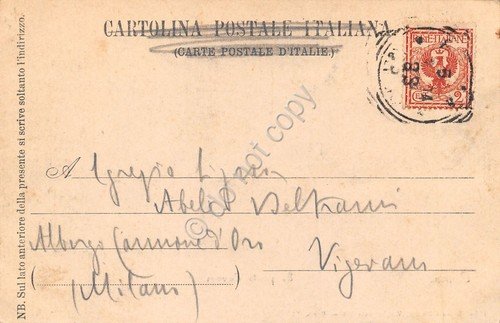 CARTOLINA POSTALE ITALIANA
(CARTE POSTALE D'ITALIE.)
NB. Sul lato anteriore della presente si scrive soltanto l'indirizzo.
A Egregio Signor
Abele Beltrami
Albergo Cannone d'Oro
Vigevano
(Milano)
do not copy